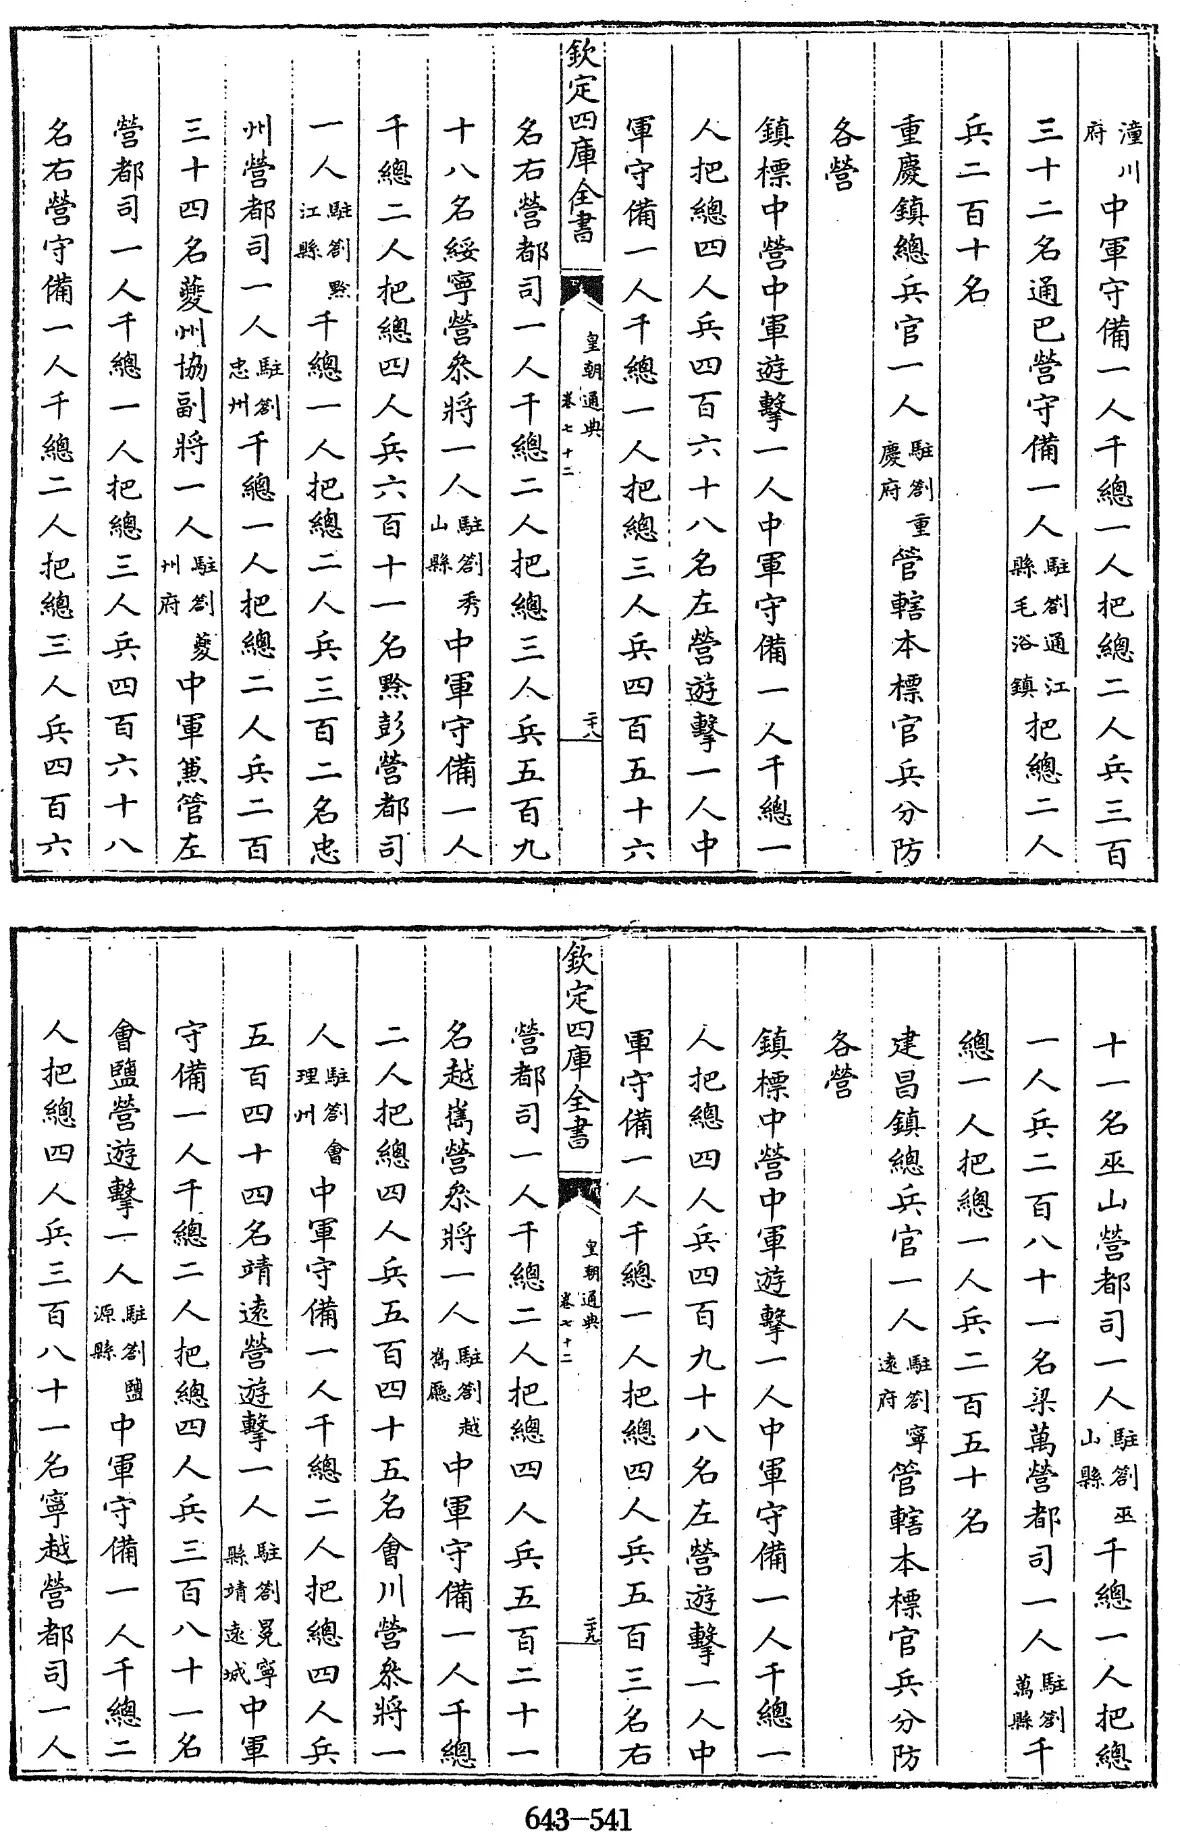 潼川府中軍守備一人千總一人把總二人兵三百
三十二名通巴營守備一人駐劄通江縣毛浴鎮把總二人
兵二百十名
重慶鎮總兵官一人駐劄重慶府管轄本標官兵分防
各營
鎮標中營中軍遊擊一人中軍守備一人千總一
人把總四人兵四百六十八名左營遊擊一人中
軍守備一人千總一人把總三人兵四百五十六
欽定四庫全書 皇朝通典 卷七十二 二十八
名右營都司一人千總二人把總三人兵五百九
十八名綏寧營叅將一人駐劄秀山縣中軍守備一人
千總二人把總四人兵六百十一名黔彭營都司
一人駐劄黔江縣千總一人把總二人兵三百二名忠
州營都司一人駐劄忠州千總一人把總二人兵二百
三十四名夔州協副將一人駐劄夔州府中軍兼管左
營都司一人千總一人把總三人兵四百六十八
名右營守備一人千總二人把總三人兵四百六
十一名巫山營都司一人駐劄巫山縣千總一人把總
一人兵二百八十一名梁萬營都司一人駐劄萬縣千
總一人把總一人兵二百五十名
建昌鎮總兵官一人駐劄寧遠府管轄本標官兵分防
各營
鎮標中營中軍遊擊一人中軍守備一人千總一
人把總四人兵四百九十八名左營遊擊一人中
軍守備一人千總一人把總四人兵五百三名右
欽定四庫全書 皇朝通典 卷七十二 二十九
營都司一人千總二人把總四人兵五百二十一
名越嶲營叅將一人駐劄越嶲廳中軍守備一人千總
二人把總四人兵五百四十五名會川營叅將一
人駐劄會理州中軍守備一人千總二人把總四人兵
五百四十四名靖遠營遊擊一人駐劄冕寧縣靖遠城中軍
守備一人千總二人把總四人兵三百八十一名
會鹽營遊擊一人駐劄鹽源縣中軍守備一人千總二
人把總四人兵三百八十一名寧越營都司一人
643-541